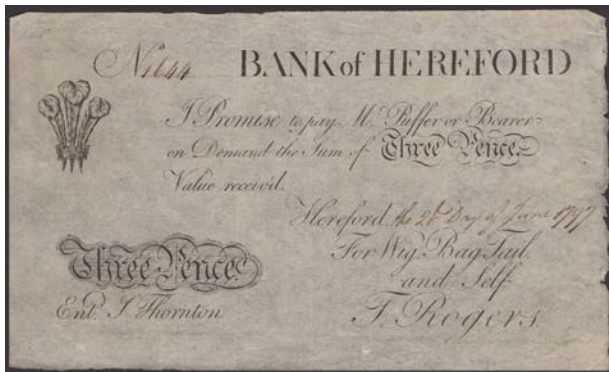 No. 1644 BANK of HEREFORD
I Promise to pay Mr. Puffer or Bearer
on Demand the Sum of Three Pence
Value receiv'd
Hereford the 28 Day of June 1797
For Wig, Bag, Tail,
and Self.
Three Pence
Entd. J. Thornton T. Rogers